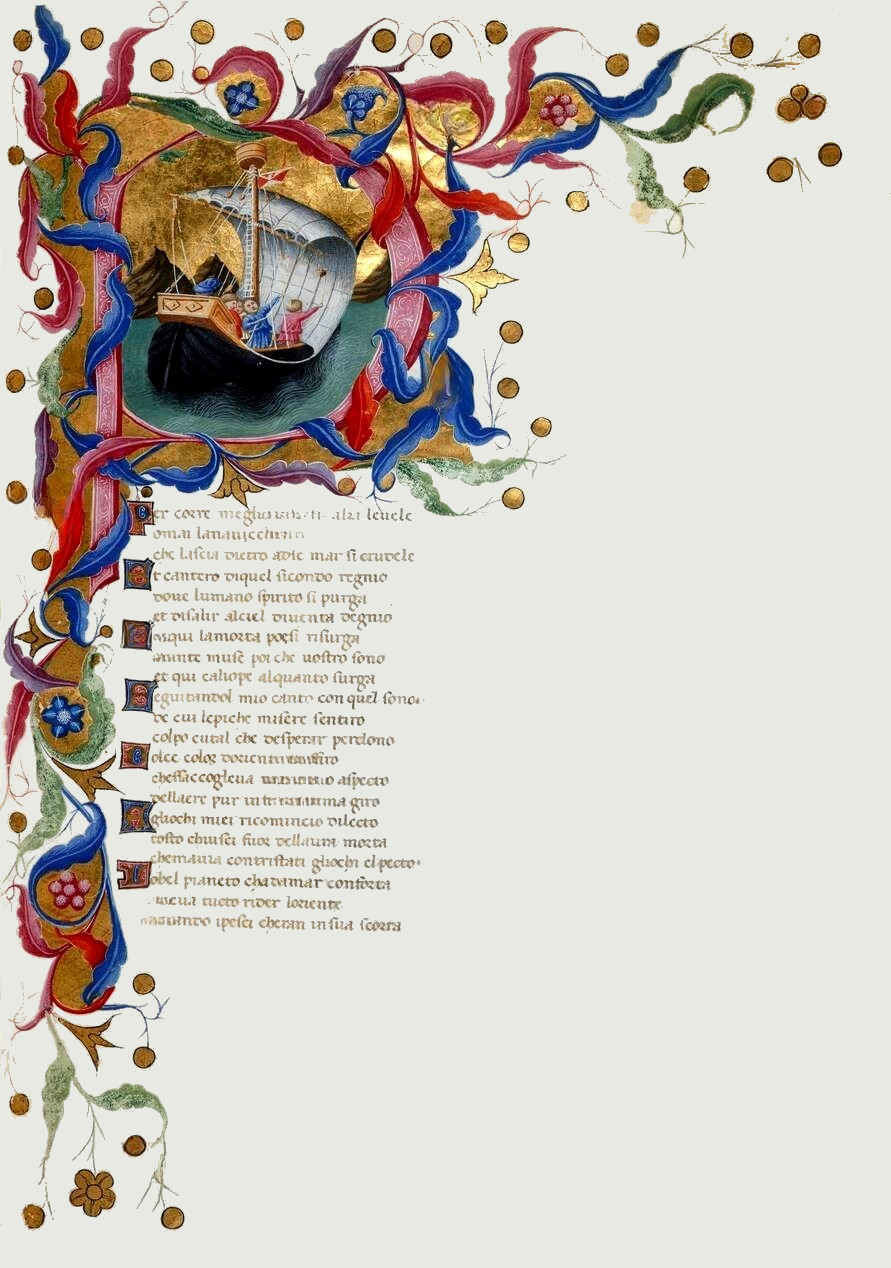 Per corre meglior alzi levele
omai lanavicella
che lascia dietro adie mar si crudele
Et cantero diquel sicondo regnio
dove lumano spirito si purga
et disalir alciel diventa degnio
qui lamorta poesi risurga
sante muse poi che vostro sono
et qui caliope alquanto surga
Seguitandol mio canto con quel sono
de cui lepiche misere sentiro
colpo cutal che desperar perdono
Dolce color doriental
chessaccoglieva aspecto
dellaere pur giro
gliochi miei ricomincio dilecto
tosto chiusci fuor dellaura morta
chemavia contristati gliochi elpecto
Lobel pianeto chadamar conforta
tucto rider loriente
velando ipesci cheran insua scorta